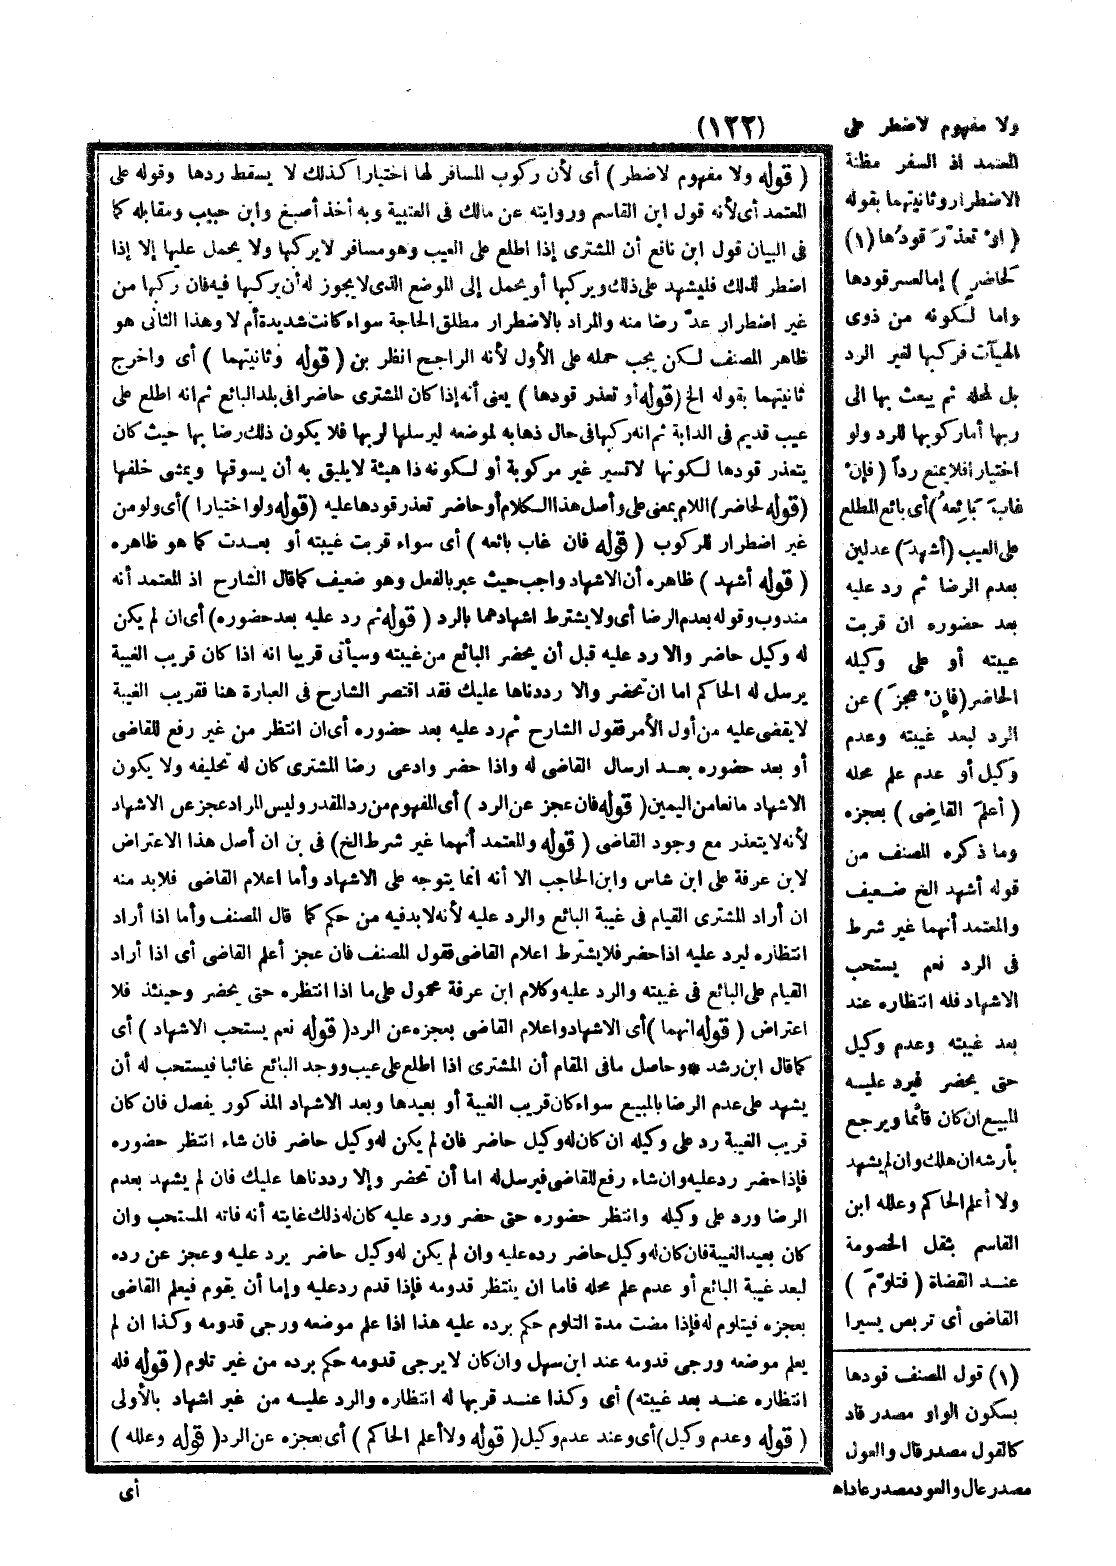 (١٢٢)
ولا مفهوم لاضطر على
المعتمد اذ السفر مظنة
الاضطرار وثانيتهما بقوله
( اوْ تعذّرَ قودُها (١)
لحاضرٍ ) إما لعسر قودها
واما لكونه من ذوى
الهيآت فركبها لغير الرد
بل لمحله ثم يبعث بها الى
ربها أما ركوبها للرد ولو
اختيارا فلا يمنع رداً ( فإنْ
غابَ بَائِعهُ ) أى بائع المطلع
على العيب (أشهدَ) عدلين
بعدم الرضا ثم رد عليه
بعد حضوره ان قربت
غيبته أو على وكيله
الحاضر (فإنْ عجزَ ) عن
الرد لبعد غيبته وعدم
وكيل أو عدم علم محله
( أعلمَ القاضِى ) بعجزه
وما ذكره المصنف من
قوله أشهد الخ ضعيف
والمعتمد أنهما غير شرط
فى الرد نعم يستحب
الاشهاد فله انتظاره عند
بعد غيبته وعدم وكيل
حتى يحضر فيرد عليه
المبيع ان كان قائما ويرجع
بأرشه ان هلك وان لم يشهد
ولا أعلم الحاكم وعلله ابن
القاسم بثقل الخصومة
عند القضاة ( فتلوّمَ )
القاضى أى تربص يسيرا
(١) قول المصنف قودها
بسكون الواو مصدر قاد
كالقول مصدر قال والعول
مصدر عال والعود مصدر عاد اه
( قوله ولا مفهوم لاضطر ) أى لأن ركوب المسافر لها اختيارا كذلك لا يسقط ردها وقوله على
المعتمد أى لأنه قول ابن القاسم وروايته عن مالك فى العتبية وبه أخذ أصبغ وابن حبيب ومقابله كما
فى البيان قول ابن نافع أن المشترى إذا اطلع على العيب وهو مسافر لا يركبها ولا يحمل عليها إلا إذا
اضطر لذلك فليشهد على ذلك ويركبها أو يحمل إلى الموضع الذى لا يجوز له أن يركبها فيه فان ركبها من
غير اضطرار عدّ رضا منه والمراد بالاضطرار مطلق الحاجة سواء كانت شديدة أم لا وهذا الثانى هو
ظاهر المصنف لكن يجب حمله على الأول لأنه الراجح انظر بن ( قوله وثانيتهما ) أى واخرج
ثانيتهما بقوله الخ (قوله أو تعذر قودها ) يعنى أنه إذا كان المشترى حاضرا فى بلد البائع ثم انه اطلع على
عيب قديم فى الدابة ثم انه ركبها فى حال ذهابه لموضعه ليرسلها لربها فلا يكون ذلك رضا بها حيث كان
يتعذر قودها لكونها لا تسير غير مركوبة أو لكونه ذا هيئة لا يليق به أن يسوقها ويمشى خلفها
(قوله لحاضر) اللام بمعنى على وأصل هذا الكلام أو حاضر تعذر قودها عليه (قوله ولو اختيارا ) أى ولو من
غير اضطرار للركوب ( قوله فان غاب بائعه ) أى سواء قربت غيبته أو بعدت كما هو ظاهره
( قوله أشهد ) ظاهره أن الاشهاد واجب حيث عبر بالفعل وهو ضعيف كما قال الشارح اذ المعتمد أنه
مندوب وقوله بعدم الرضا أى ولا يشترط اشهادهما بالرد ( قوله ثم رد عليه بعد حضوره) أى ان لم يكن
له وكيل حاضر والا رد عليه قبل أن يحضر البائع من غيبته وسيأتى قريبا انه اذا كان قريب الغيبة
يرسل له الحاكم اما ان تحضر والا رددناها عليك فقد اقتصر الشارح فى العبارة هنا فقريب الغيبة
لا يقضى عليه من أول الأمر فقول الشارح ثم رد عليه بعد حضوره أى ان انتظر من غير رفع للقاضى
أو بعد حضوره بعد ارسال القاضى له واذا حضر وادعى رضا المشترى كان له تحليفه ولا يكون
الاشهاد مانعا من اليمين ( قوله فان عجز عن الرد ) أى المفهوم من رد المقدر وليس المراد عجز عن الاشهاد
لأنه لا يتعذر مع وجود القاضى ( قوله والمعتمد أنهما غير شرط الخ) فى بن ان أصل هذا الاعتراض
لابن عرفة على ابن شاس وابن الحاجب الا أنه انما يتوجه على الاشهاد وأما اعلام القاضى فلابد منه
ان أراد المشترى القيام فى غيبة البائع والرد عليه لأنه لابد فيه من حكم كما قال المصنف وأما اذا أراد
انتظاره ليرد عليه اذا حضر فلا يشترط اعلام القاضى فقول المصنف فان عجز أعلم القاضى أى اذا أراد
القيام على البائع فى غيبته والرد عليه وكلام ابن عرفة محمول على ما اذا انتظره حتى يحضر وحينئذ فلا
اعتراض ( قوله انهما ) أى الاشهاد واعلام القاضى بعجزه عن الرد( قوله نعم يستحب الاشهاد ) أى
كما قال ابن رشد * وحاصل مافى المقام أن المشترى اذا اطلع على عيب ووجد البائع غائبا فيستحب له أن
يشهد على عدم الرضا بالمبيع سواء كان قريب الغيبة أو بعيدها وبعد الاشهاد المذكور يفصل فان كان
قريب الغيبة رد على وكيله ان كان له وكيل حاضر فان لم يكن له وكيل حاضر فان شاء انتظر حضوره
فإذا حضر رد عليه وان شاء رفع للقاضى فيرسل له اما أن تحضر وإلا رددناها عليك فان لم يشهد بعدم
الرضا ورد على وكيله وانتظر حضوره حتى حضر ورد عليه كان له ذلك غايته أنه فاته المستحب وان
كان بعيد الغيبة فان كان له وكيل حاضر رده عليه وان لم يكن له وكيل حاضر يرد عليه وعجز عن رده
لبعد غيبة البائع أو عدم علم محله فاما ان ينتظر قدومه فإذا قدم رد عليه وإما أن يقوم فيعلم القاضى
بعجزه فيتلوم له فإذا مضت مدة التلوم حكم برده عليه هذا اذا علم موضعه ورجى قدومه وكذا ان لم
يعلم موضعه ورجى قدومه عند ابن سهل وان كان لا يرجى قدومه حكم برده من غير تلوم ( قوله فله
انتظاره عند بعد غيبته) أى وكذا عند قربها له انتظاره والرد عليه من غير اشهاد بالأولى
( قوله وعدم وكيل) أى وعند عدم وكيل ( قوله ولا أعلم الحاكم ) أى بعجزه عن الرد( قوله وعلله )
أى